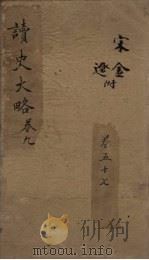 宋金
遼附
卷五十七
讀史大略 卷九